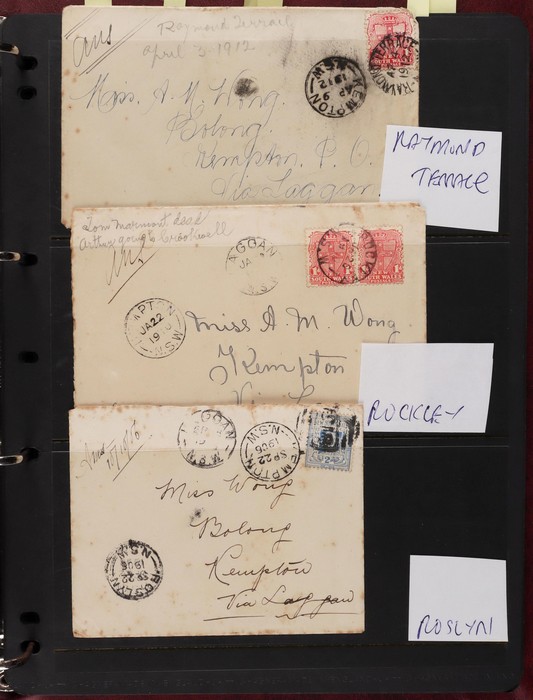 ans
Raymond Terrace
April 3 1912
KEMPTON
AP
9
1912
N.S.W.
RAYMOND TERRACE
Miss. A. M. Wong.
Bolong.
Kempton. P. O.
Via Laggan.
RAYMOND
TERRACE
Arthur going to Crookwell
ans
GGAN
JA
PTON
JA 22
N.S.W.
Miss A. M. Wong.
Kempton
Via L
ROCKLEY
Ans
GGAN
N.S.W
EMPTON
SP 22
1906
N.S.W.
Miss Wong
Bolong
Kempton
Via Laggan
ROSLYN
SP 22
1906
N.S.W
ROSLYN